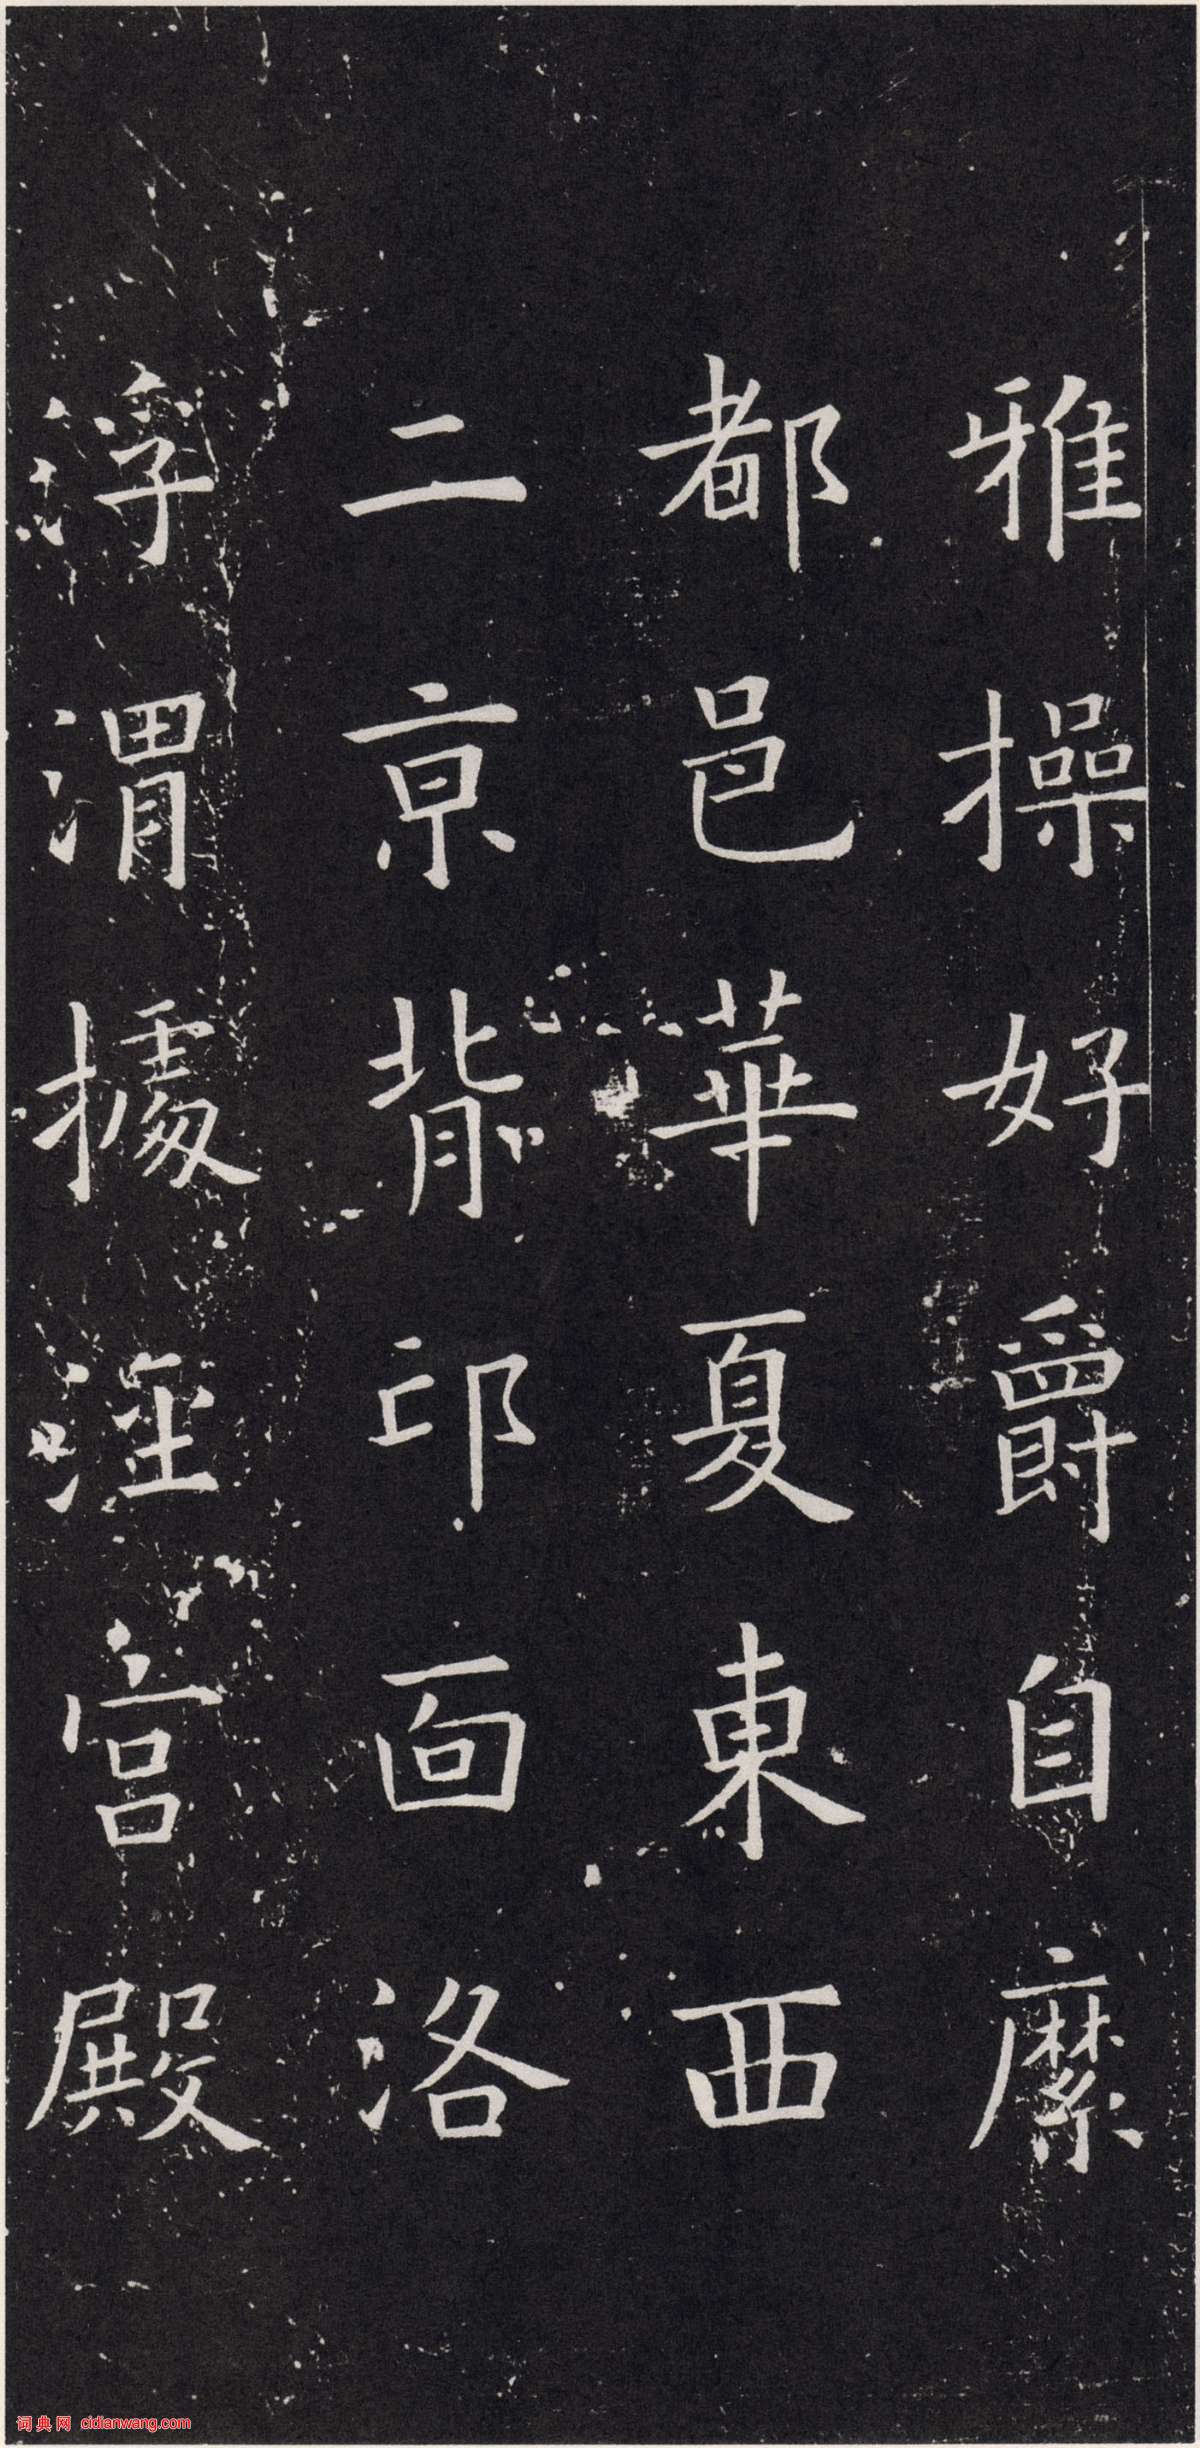 雅操好爵自縻
都邑華夏東西
二京背邙面洛
浮渭據涇宫殿
词典网 cidianwang.com